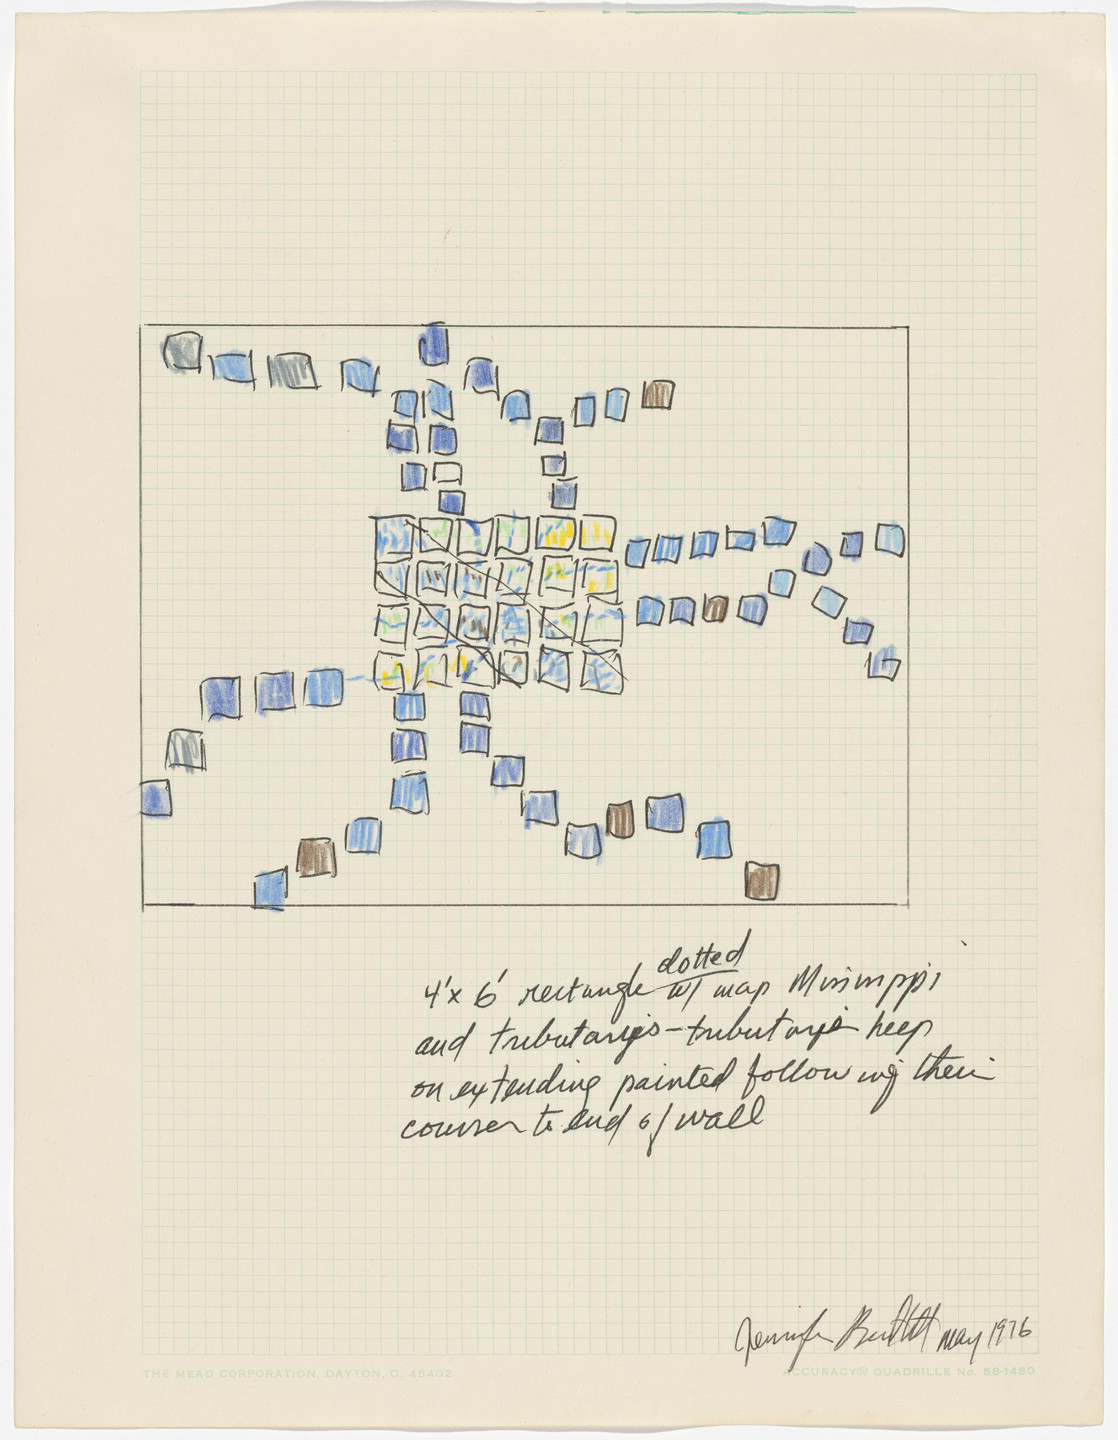 dotted
4'x 6' rectangle w/ map Missimppi
and tributarys - tributarys keep
on extending painted following their
courses to end of wall
Jennifer Bartlett may 1976
THE MEAD CORPORATION, DAYTON, O. 45402
ACCURACY® QUADRILLE No. 58-1480